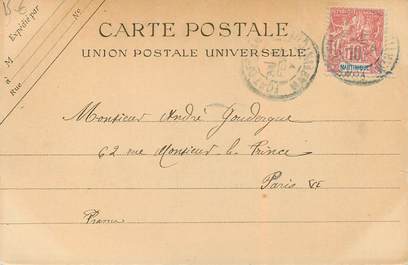 No.
Expédié par
M
à
Rue
CARTE POSTALE
UNION POSTALE UNIVERSELLE
10
MARTINIQUE
Monsieur André
62 rue Monsieur-le-Prince
Paris
France